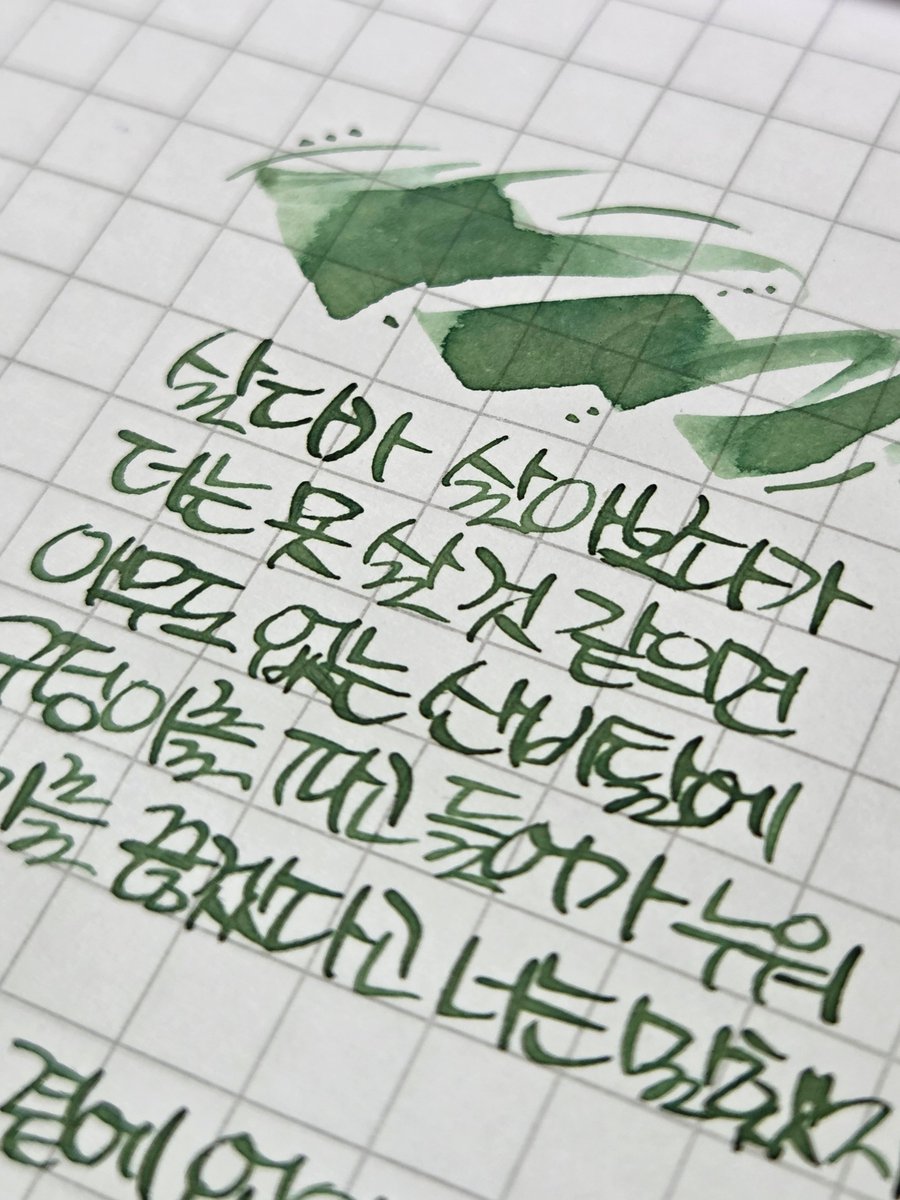 살다가 살아보다가
더는 못 살 것 같으면
아무도 없는 산비탈에
구덩이를 파고 들어가 누워
를 끔쩍다고 너는 말했지
곁에